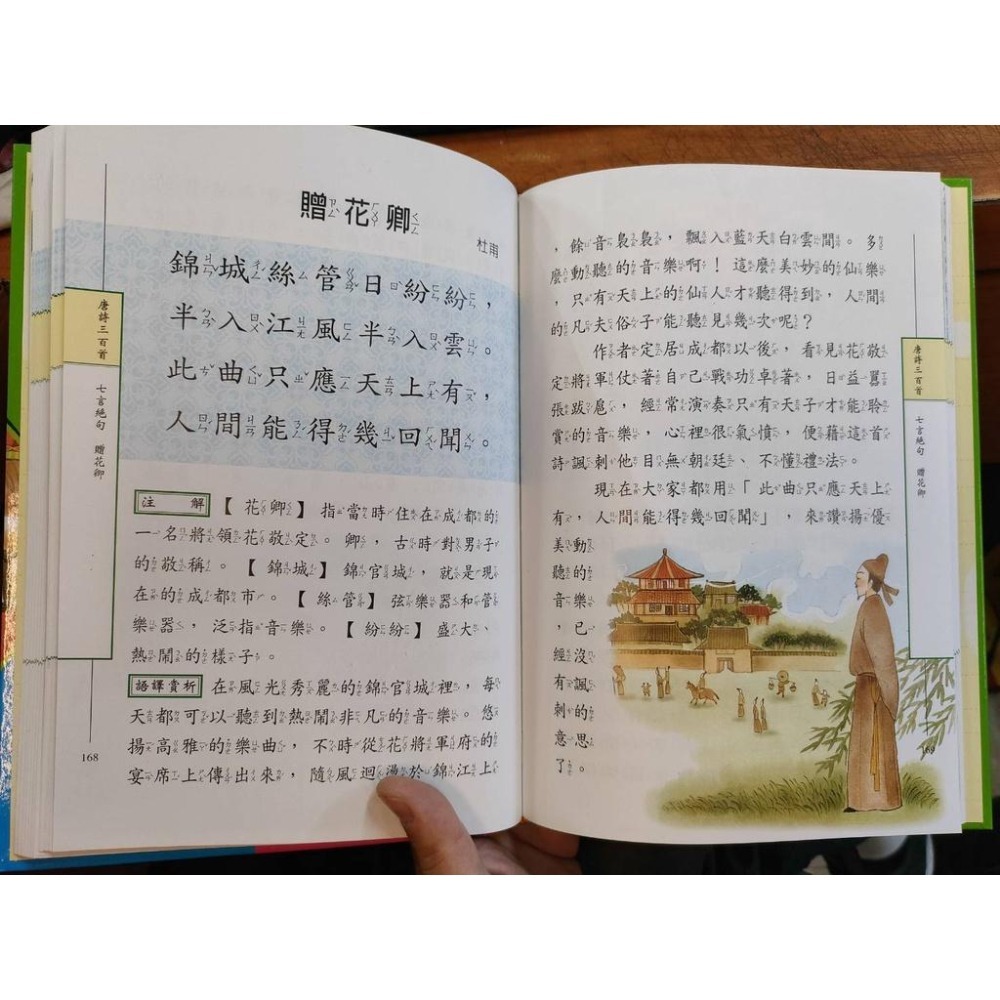 贈花卿
杜甫
錦城絲管日紛紛，
半入江風半入雲。
此曲只應天上有，
人間能得幾回聞。
注解 【花卿】指當時住在成都的
一名將領花敬定。卿，古時對男子
的敬稱。【錦城】錦官城，就是現
在的成都市。【絲管】弦樂器和管
樂器，泛指音樂。【紛紛】盛大、
熱鬧的樣子。
語譯賞析 在風光秀麗的錦官城裡，每
天都可以聽到熱鬧非凡的音樂。悠
揚高雅的樂曲，不時從花將軍府的
宴席上傳出來，隨風迴盪於錦江上
唐詩三百首
七言絕句 贈花卿
168
，餘音裊裊，飄入藍天白雲間。多
麼動聽的音樂啊！這麼美妙的仙樂
，只有天上的仙人才聽得到，人間
的凡夫俗子能聽見幾次呢？
作者定居成都以後，看見花敬
定將軍仗著自己戰功卓著，日益囂
張跋扈，經常演奏只有天子才能聆
賞的音樂，心裡很氣憤，便藉這首
詩諷刺他目無朝廷、不懂禮法。
現在大家都用「此曲只應天上
有，人間能得幾回聞」，來讚揚優
美動
聽的
音樂
，已
經沒
有諷
刺的
意思
了。
唐詩三百首
七言絕句 贈花卿
169